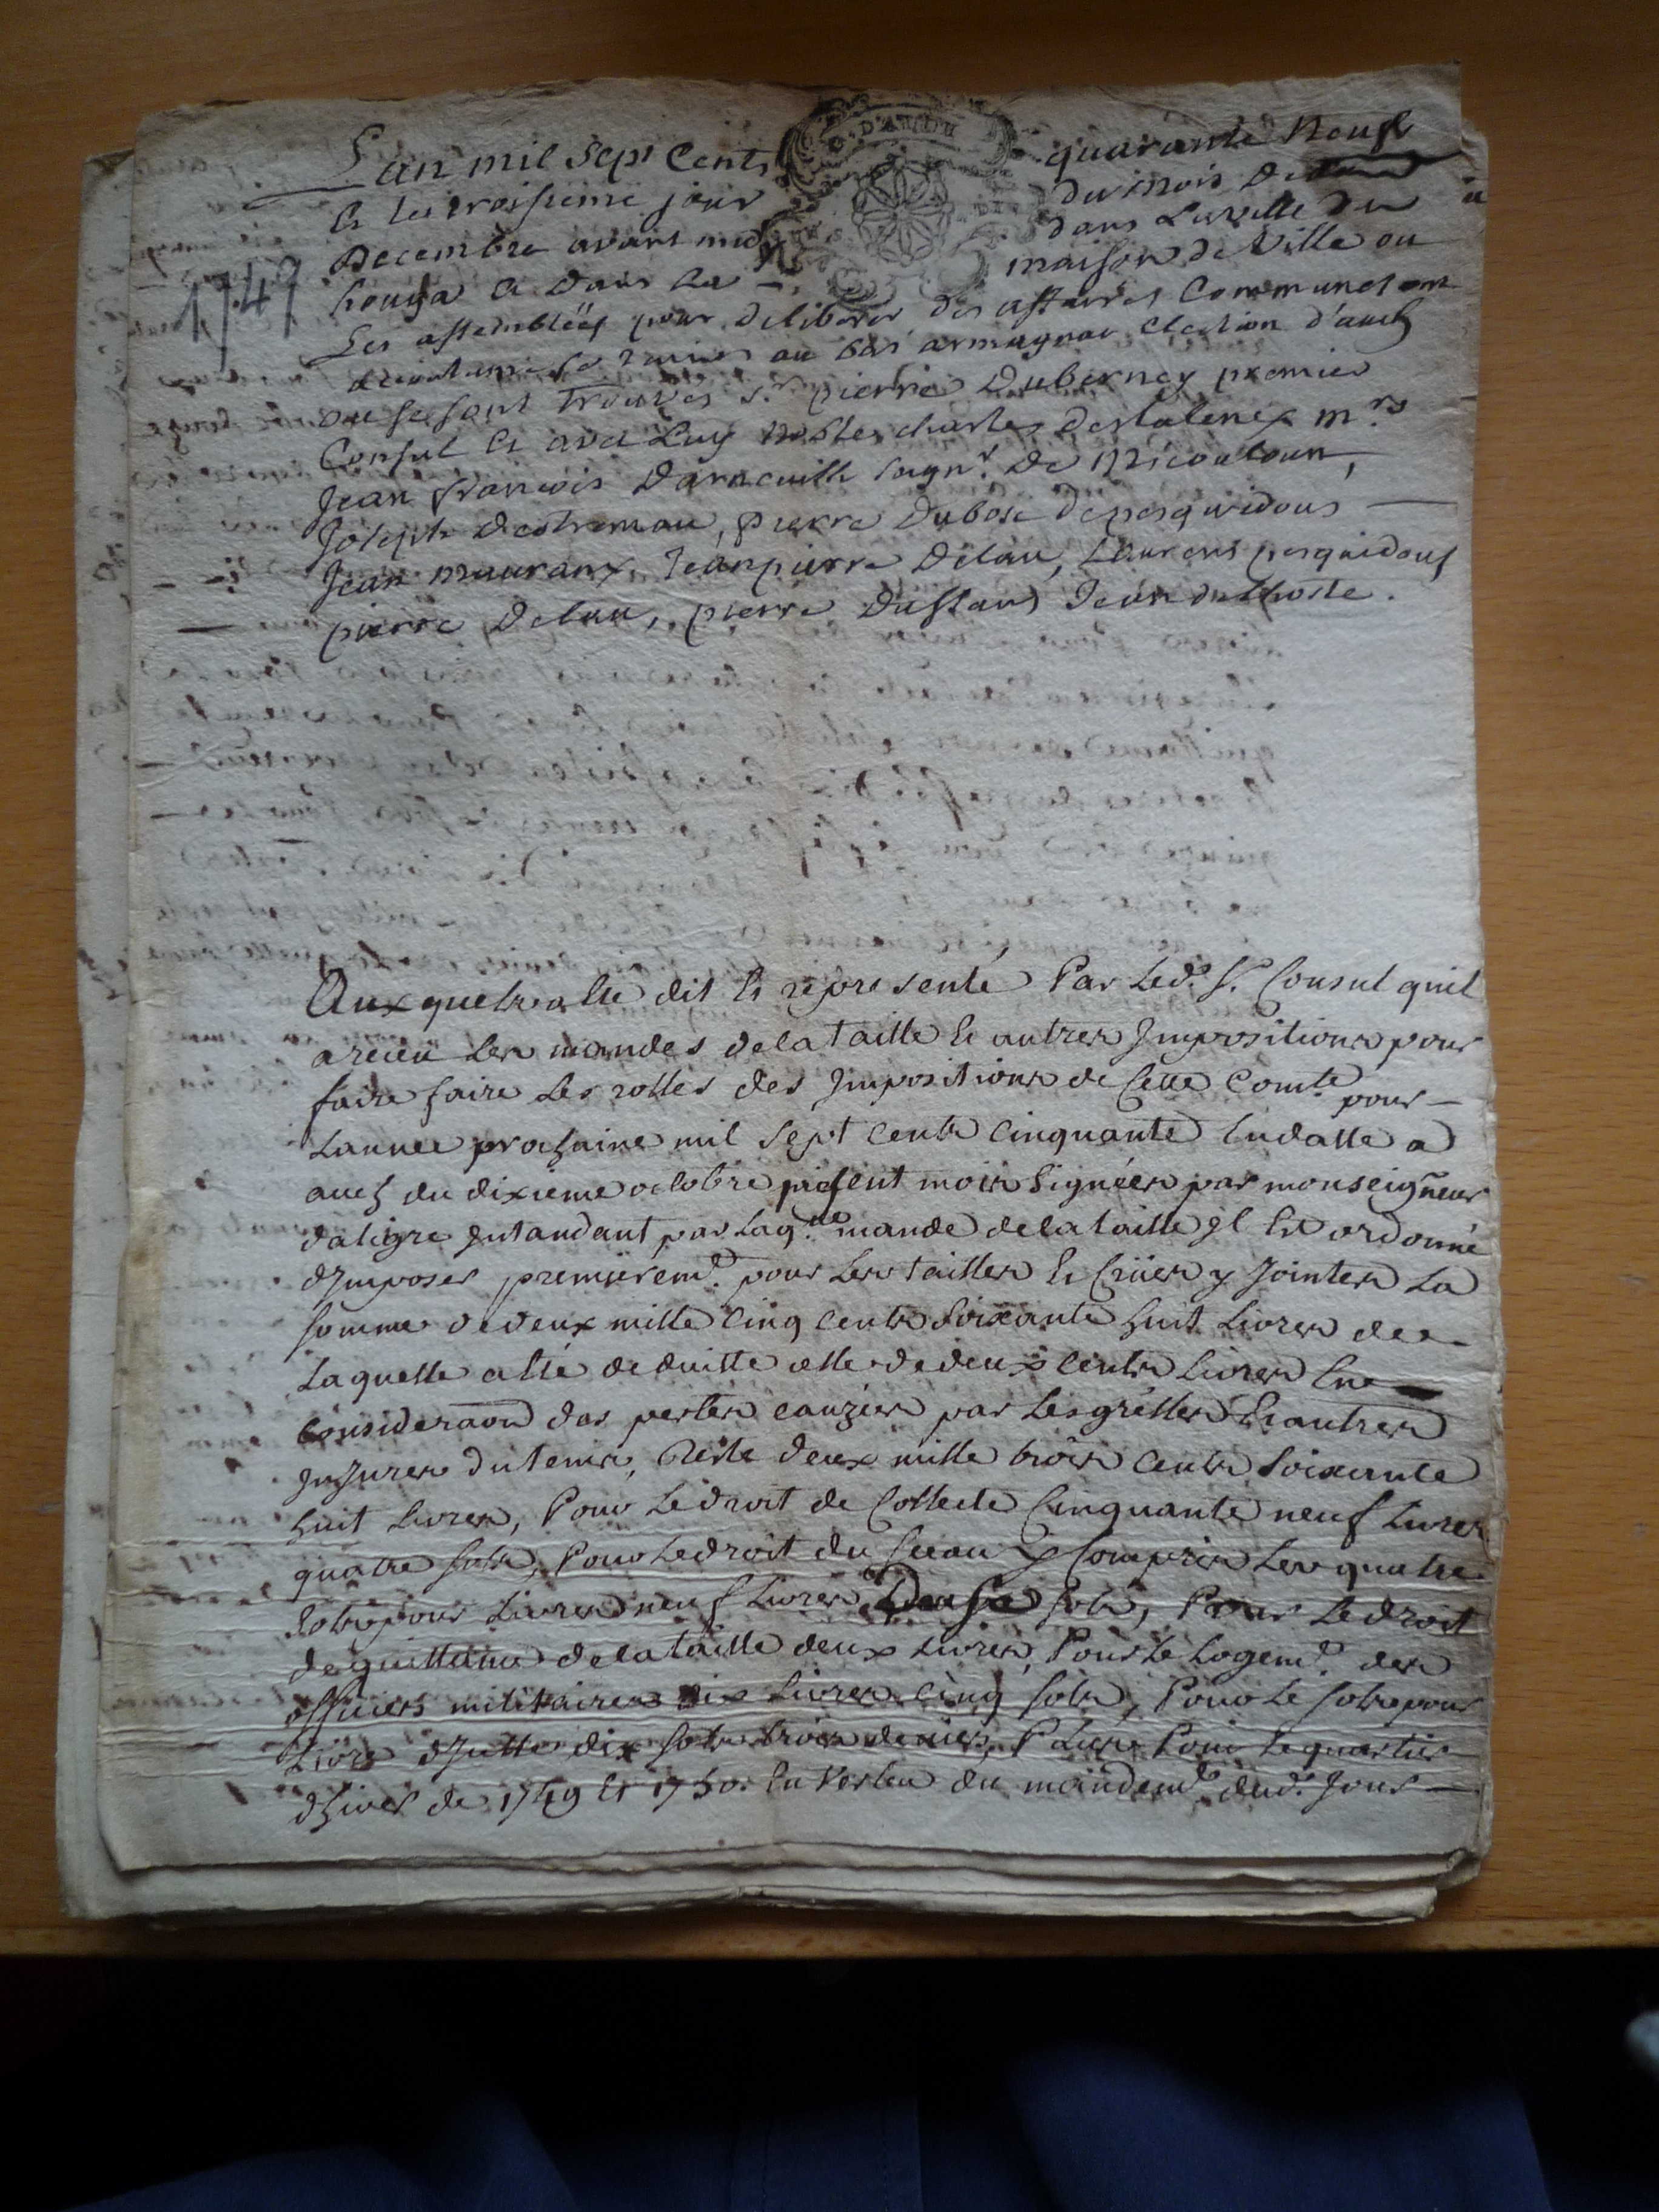 D'AUCH
1749
L'an mil sept Cents quarante neuf
et le troisieme jour du mois de
Decembre avant midy dans La ville du
houga et dans La maison de Ville ou
Les assemblées pour deliberer des affaires Communes ont
accoutumé se tenir au bas armagnac election d'auch
ou se sont trouvés Sr. pierre Duberney premier
Consul et avec Luy Noble charles destalenx mrs
Jean françois Darneuilh seignr. De
Joseph destremau, pierre Dubosc depesquidous
Jean mauranx, Jean pierre Delau, Laurens pesquidous
pierre Delau, pierre Dussans Jean
Auxquels a été dit et represente Par Led. Sr. Consul quil
a receu Les mandes de la taille et autres Impositions pour
faire faire Les rolles des Impositions de Cette Comte. pour
Lannee prochaine mil Sept cents cinquante En datte a
auch du dixieme octobre present mois Signées par monseigneur
daligre Intandant par Laqlle. mande de la taille Il Est ordonné
dImposer premieremt. pour Les tailles et Crües y Jointes La
somme de deux mille cinq cents soixante huit Livres de
Laquelle a été deduitte celle de deux cents Livres En
consideraon des pertes cauzées par Les grêlles Et autres
Injures du tems, Reste deux mille trois cents soixante
huit Livres, Pour Le droit de Collecte Cinquante neuf Livres
quatre sols, Pour Le droit du Sceau y Compris Les quatre
sols pour Livres neuf Livres sols, Pour Le droit
de quittance de la taille deux Livres, Pour Le Logemt. des
officiers militaires Livres cinq sols, Pour Le sols pour
Livre dIcelle dix sols trois deniers, Pour Le quartier
dhiver de 1749 et 1750 En Verteu du mandemt. dud. Jour